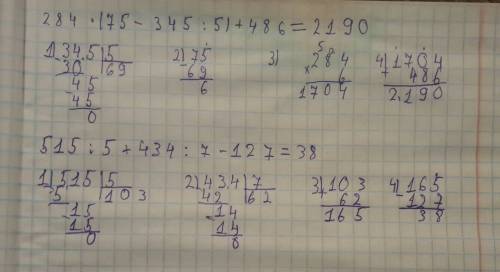 284 · (75 - 345 : 5) + 486 = 2190
1) 345 | 5   2) 75   3) 284   4) 1704
30 | 69   - 69   × 6   + 486
45   6   1704   2190
- 45
0
515 : 5 + 434 : 7 - 127 = 38
1) 515 | 5   2) 434 | 7   3) 103   4) 165
- 5 | 103   42 | 62   62   - 127
15   14   165   38
- 15   - 14
0   0